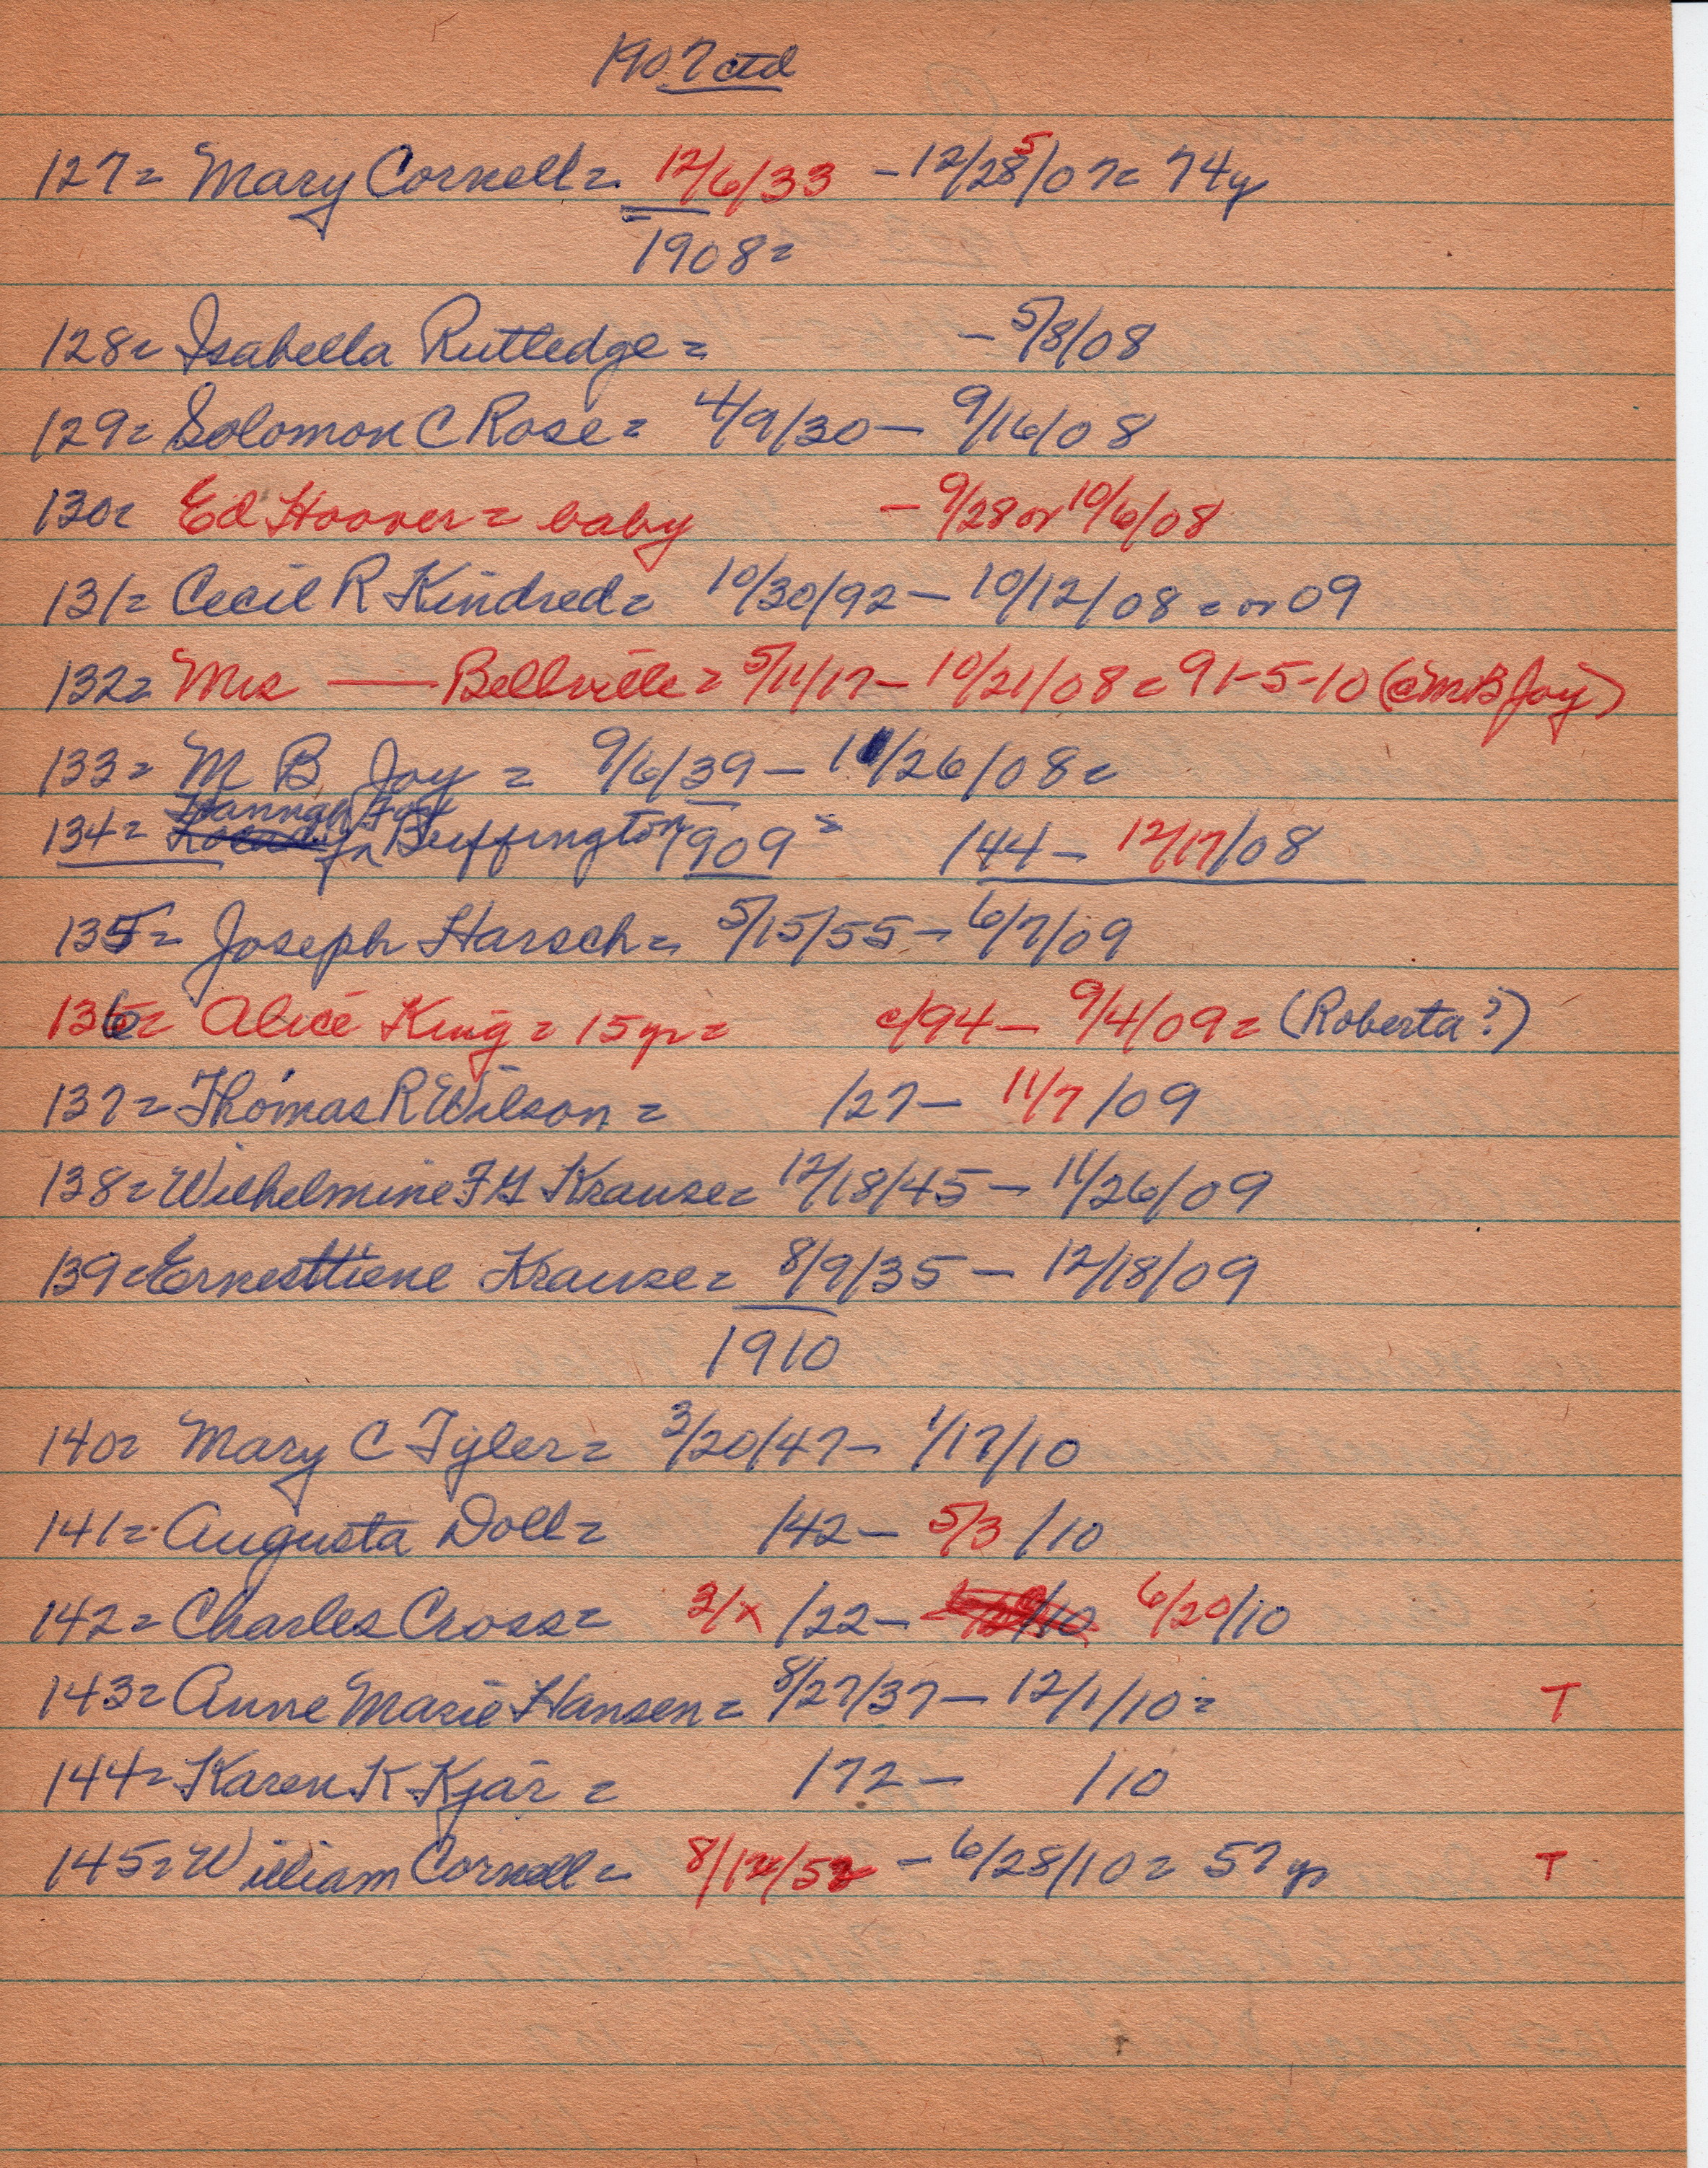 1907 ctd
127= Mary Cornell= 12/6/33 - 12/28/07= 74y
5
1908=
128= Isabella Rutledge= - 5/8/08
129= Solomon C Rose= 4/9/30 - 9/16/08
130= Ed Hoover= baby - 9/28 or 10/6/08
131= Cecil R Kindred= 10/30/92 - 10/12/08= or 09
132= Mrs — Bellville= 5/11/17 - 10/21/08= 91-5-10 (c M B Joy)
133= M B Joy = 9/6/39 - 11/26/08=
Hannah
134= Buffington 1909= /44 - 12/17/08
135= Joseph Harsch= 5/15/55 - 6/7/09
136= Alice King= 15yr= c/94 - 9/4/09= (Roberta?)
137= Thomas R Wilson= /27 - 11/7/09
138= Wilhelmine F G Krause= 12/18/45 - 11/26/09
139= Ernesttiene Krause= 8/9/35 - 12/18/09
1910
140= Mary C Tyler= 3/20/47 - 1/17/10
141= Augusta Doll= /42 - 5/3/10
142= Charles Cross= 2/x/22 - 6/20/10
143= Anne Marie Hansen= 8/27/37 - 12/1/10= T
144= Karen K Kjär= /72 - /10
145= William Cornell= 8/12/52 - 6/28/10= 57yr T